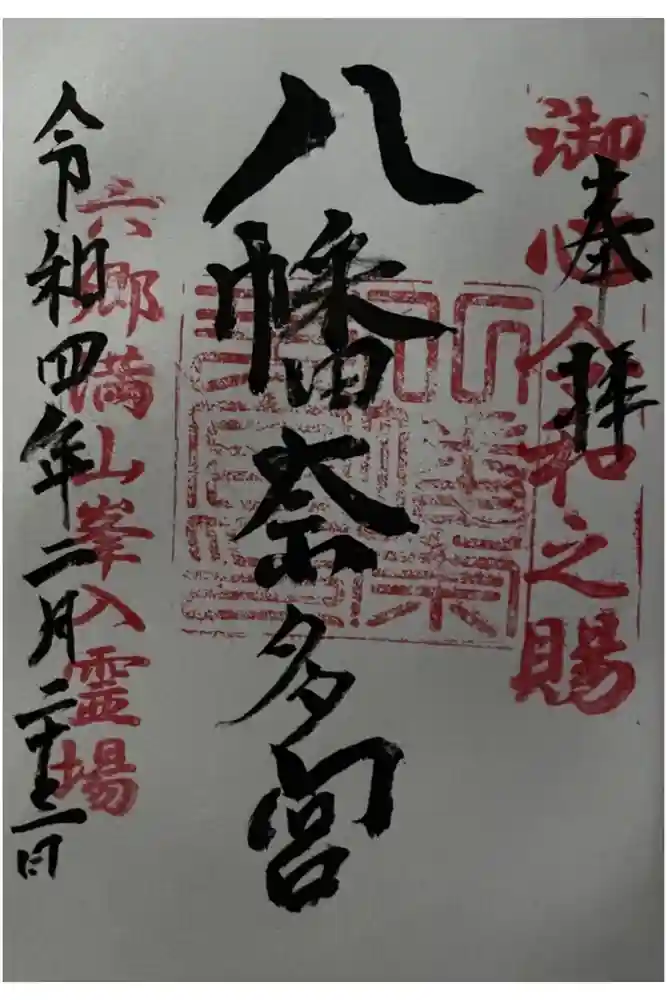 奉拝
御心令和之賜
八幡奈多宮
六郷満山峯入霊場
令和四年二月二十二日